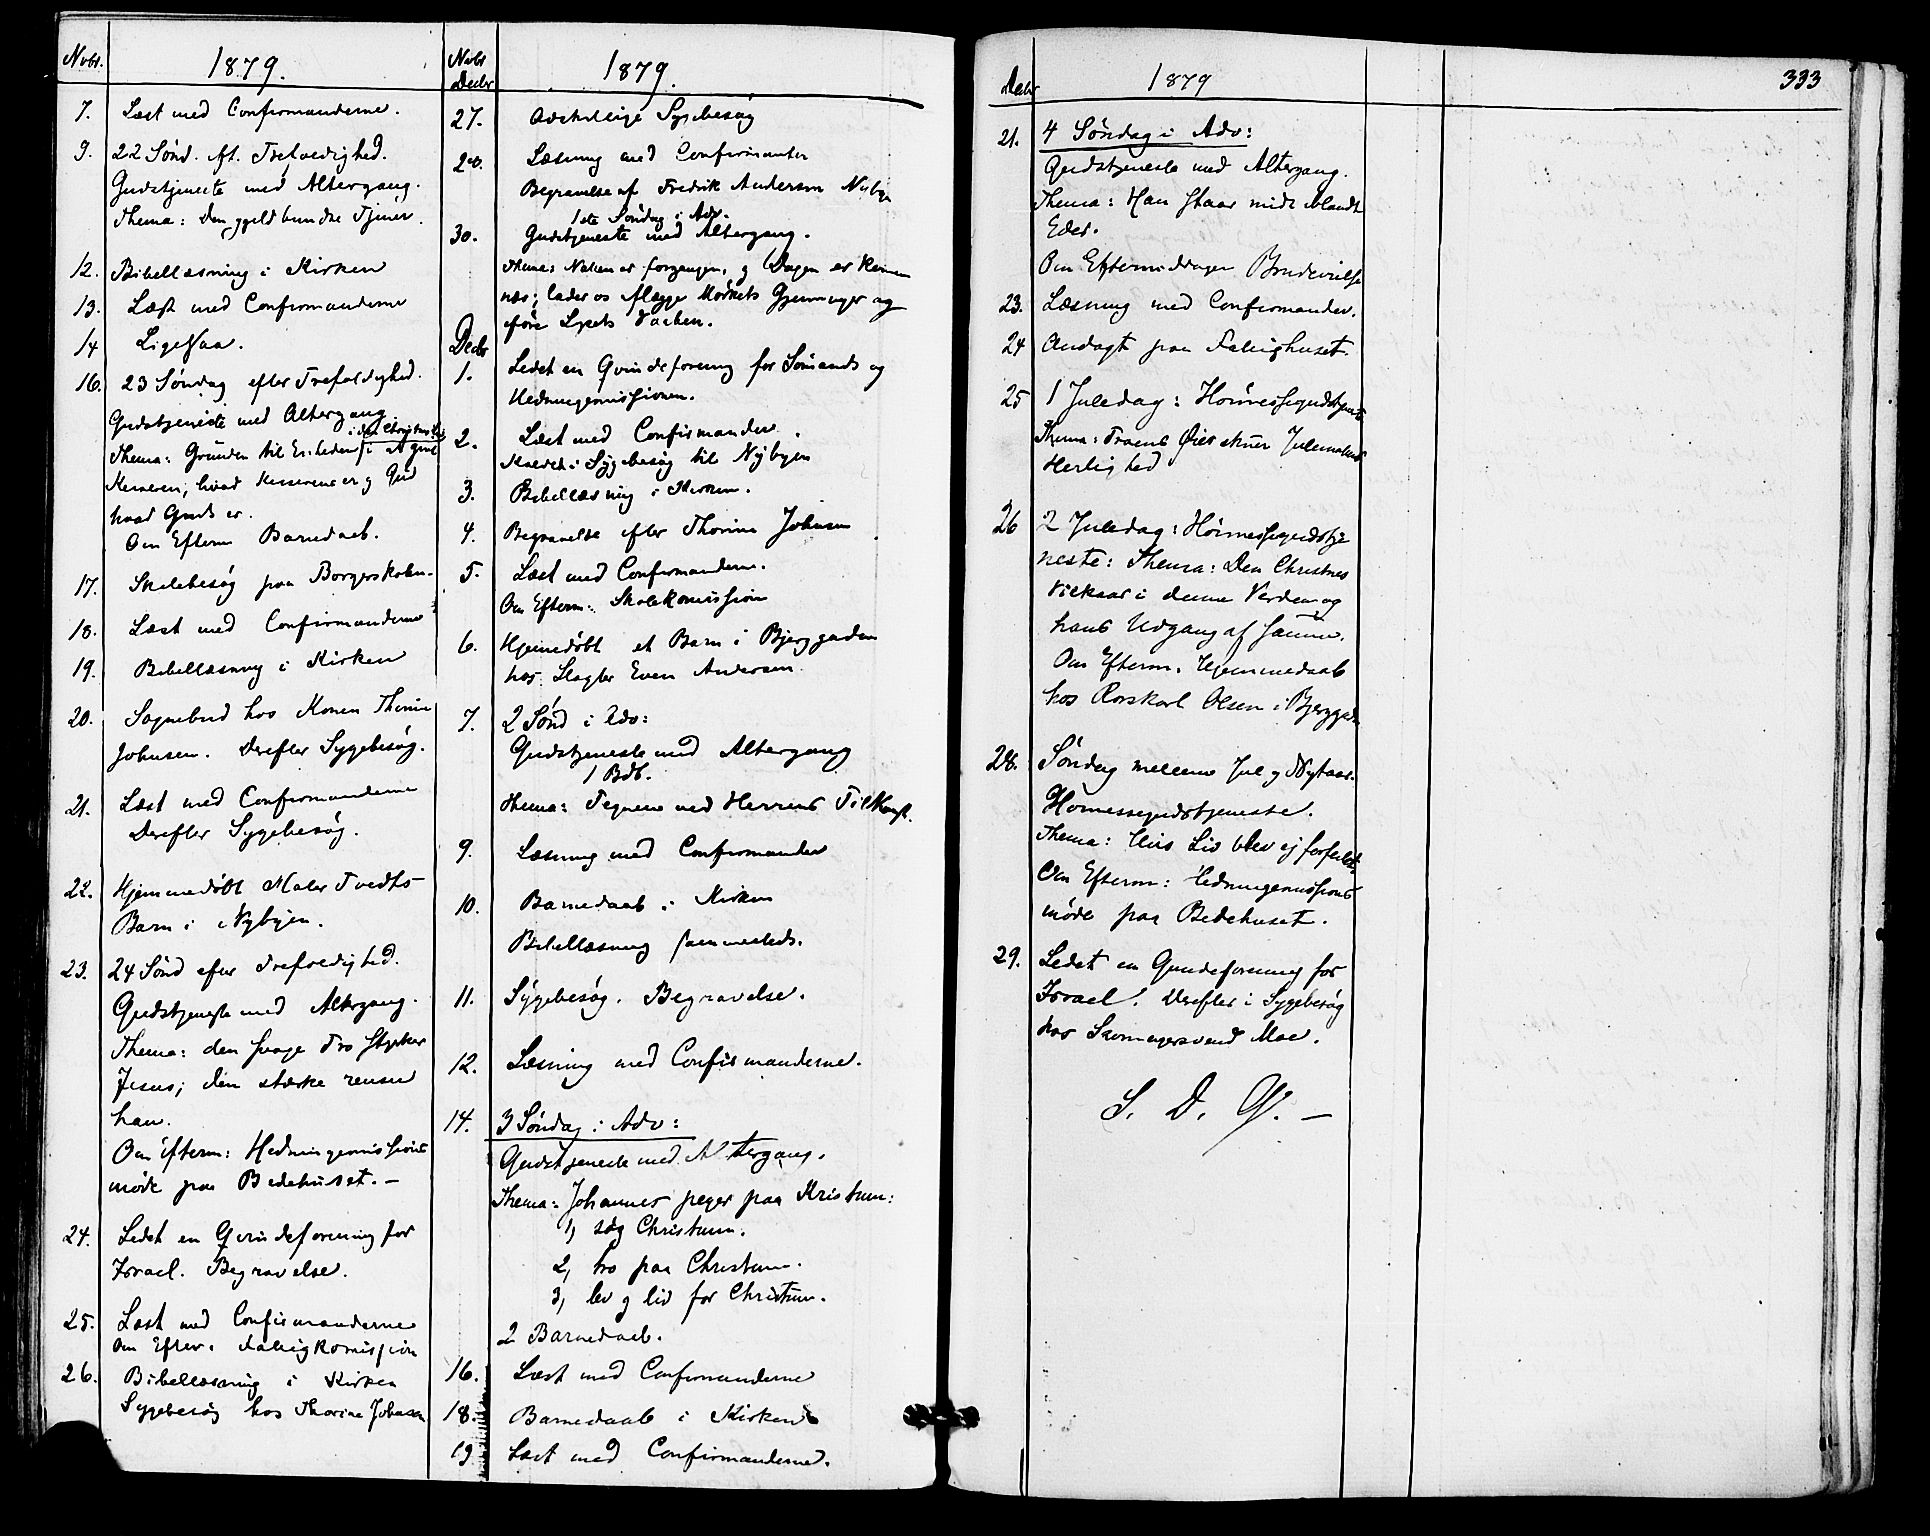 Novbr. 1879.
7. Læst med Confirmanderne.
9. 22 Sønd. ft. Trefoldighed.
Gudstjeneste med Altergang.
Thema: Den gjeldbundne Tjener.
12. Bibellæsning i Kirken
13. Læst med Confirmanderne
14 Ligesaa.
16. 23 Søndag efter Trefoldighed.
Gudstjeneste med Altergang
Thema: Grunden til Enheden i at give
Keiseren, hvad Keiserens er, og Gud
hvad Guds er.
Om Efterm Barnedaab.
17. Skolebesøg paa Borgerskolen.
18. Læst med Confirmanderne
19. Bibellæsning i Kirken
20. Sognebud hos Konen Thorine
Johnsen. Derefter Sygebesøg.
21. Læst med Confirmanderne
Derefter Sygebesøg.
22. Hjemmedøbt Maler Tvedts
Barn i Nybyen.
23. 24 Sønd efter Trefoldighed.
Gudstjeneste med Altergang.
Thema: den svage Tro styrker
Jesus; den stærke renser
han.
Om Efterm: Hedningemissions
møde paa Bedehuset. –
24. Ledet en Qvindeforening for
Israel. Begravelse.
25. Læst med Confirmanderne
Om Efter. Fattigkomission
26. Bibellæsning i Kirken
Sygebesøg hos Thorine Johnsen
Novbr Decbr 1879.
27. Adskillige Sygebesøg
28. Læsning med Confirmanter
Begravelse af Fredrik Andersen Nybye
1ste Søndag i Adv.
30. Gudstjeneste med Altergang.
Thema: Natten er forgangen, og Dagen er kommen
nær; lader os aflægge Mørkets Gjerninger og
iføre Lysets Vaaben.
Decbr
1. Ledet en Qvindeforening for Sømands og
Hedningemissionen.
2. Læst med Confirmander.
Kaldet i Sygebesøg til Nybyen
3. Bibellæsning i Kirken.
4. Begravelse efter Thorine Johnsen
5. Læst med Confirmanderne.
Om Efterm: Skolekomission
6. Hjemmedøbt et Barn i Bjerggaden
hos Slagter Even Andersen.
7. 2 Sønd i Adv:
Gudstjeneste med Altergang
1 Bdb.
Thema: Tegnene ved Herrens Tilkomst.
9. Læsning med Confirmander
10. Barnedaab i Kirken
Bibellæsning sammesteds.
11. Sygebesøg. Begravelse.
12. Læsning med Confirmanderne.
14. 3 Søndag i Adv:
Gudstjeneste med Altergang.
Thema: Johannes peger paa Kristum:
1, søg Christum.
2, tro paa Christum.
3, lev og lid for Christum.
2 Barnedaab.
16. Læst med Confirmanderne
18. Barnedaab i Kirken
19 Læst med Confirmanderne.
Decbr 1879 333
21. 4 Søndag i Adv:
Gudstjeneste med Altergang.
Thema: Han staar midt iblandt
Eder.
Om Eftermiddagen Brudevielse
23. Læsning med Confirmander.
24 Andagt paa Fattighuset.
25 1 Juledag: Høimessegudstjeneste
Thema: Troens Øie skuer Julenattens
Herlighed
26 2 Juledag: Høimessegudstje
neste: Thema: Den Christnes
Vilkaar i denne Verden og
hans Udgang af samme.
Om Efterm. Hjemmedaab
hos Rorskarl Olsen i Bjerggaden
28. Søndag mellem Jul og Nytaar.
Høimessegudstjeneste.
Thema: Hvis Liv blev ej forfeilet
Om Efterm: Hedningemissions
møde paa Bedehuset.
29. Ledet en Qvindeforening for
Israel. Derefter i Sygebesøg
hos Skomagersvend Moe.
S. D. G. –